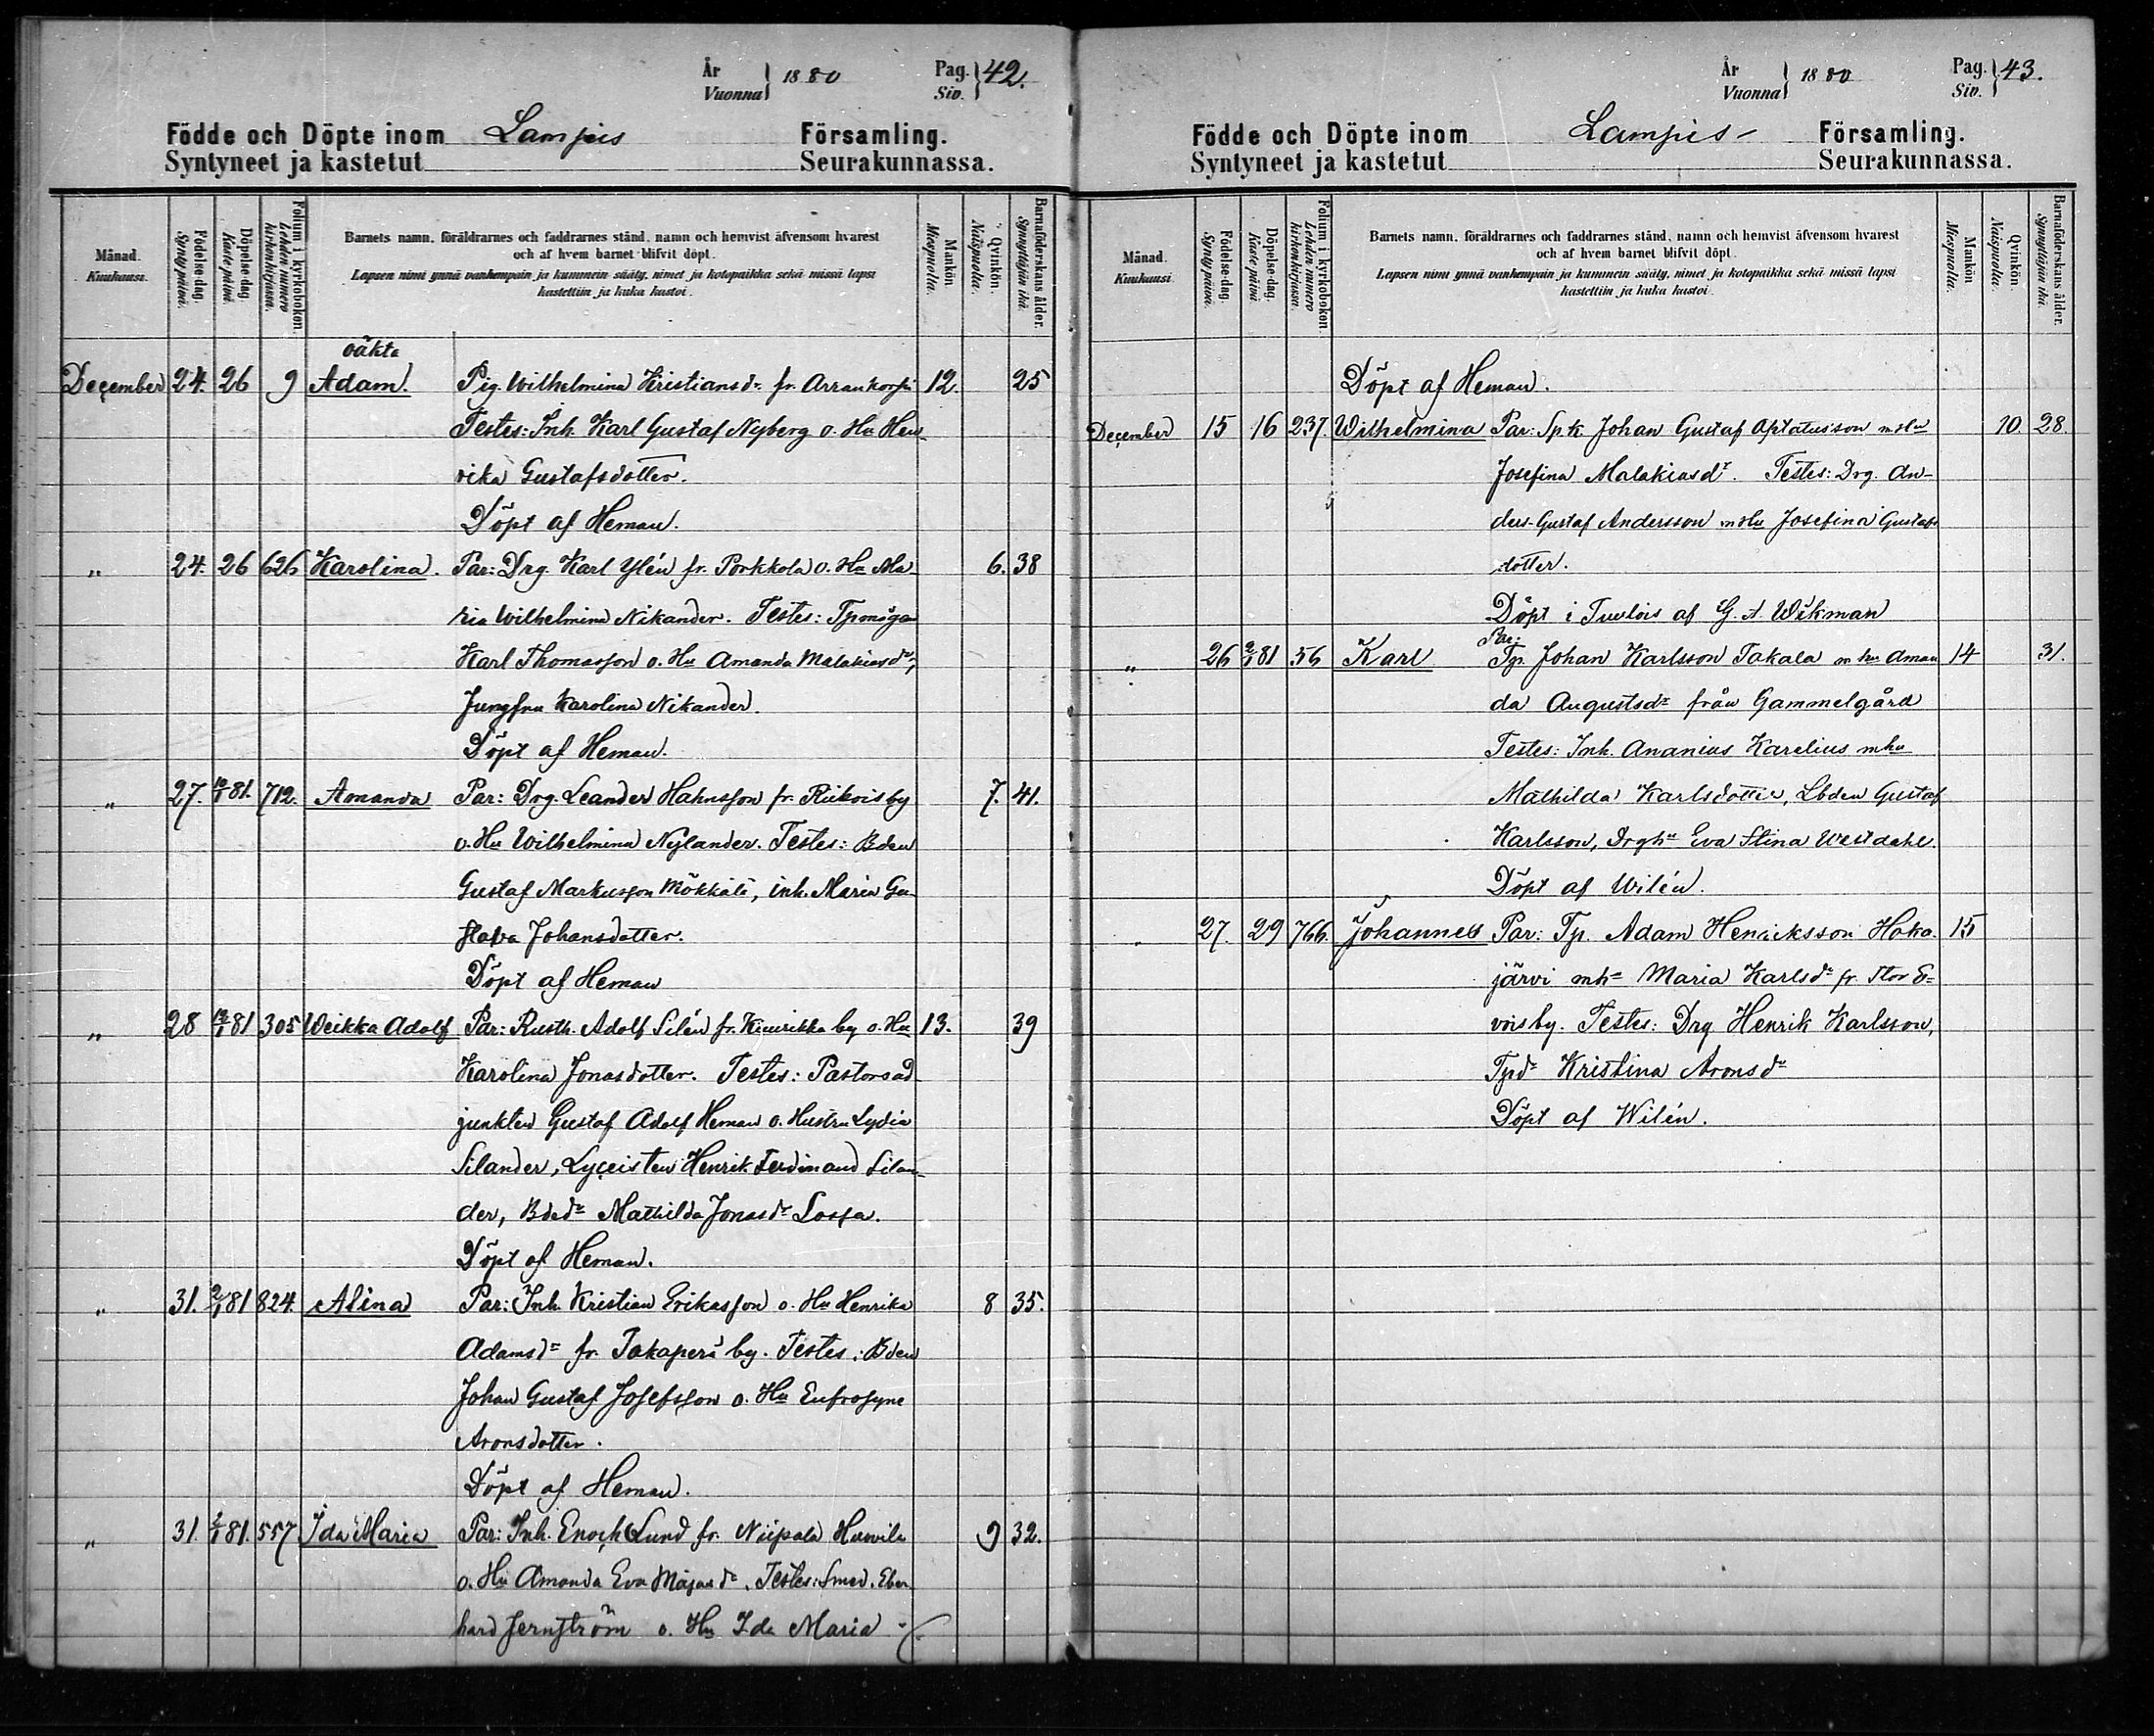 År
Vuonna } 1880 Pag.
Siv. } 42.
Födde och Döpte inom Lampis Församling.
Syntyneet ja kastetut Seurakunnassa.
Månad.
Kuukausi.
Födelse-dag.
Synty päivä.
Döpelse-dag.
Kaste päivä.
Folium i kyrkobokon.
Lehden numero kirkonkirjassa.
Barnets namn, föräldrarnes och faddrarnes stånd, namn och hemvist äfvensom hvarest
och af hvem barnet blifvit döpt.
Lapsen nimi ynnä vanhempain ja kummein sääty, nimet ja kotopaikka sekä missä lapsi
kastettiin ja kuka kastoi.
Mankön.
Miespuolia.
Qvinkön.
Naispuolia.
Barnaföderskans ålder.
Synnyttäjän ikä.
oäkta
December 24. 26 9 Adam. Pig. Wilhelmina Kristiansdr. fr. Arrankorpi 12. 25
Testes: Inh. Karl Gustaf Nyberg o. Hu Hen-
rika Gustafsdotter.
Döpt af Heman.
" 24. 26 626 Karolina. Par: Drg. Karl Ylén fr. Porkkola o. Hu Ma- 6. 38
ria Wilhelmina Nikander. Testes: Tpmågen
Karl Thomasson o. Hu Amanda Malakiasdr,
Jungfru Karolina Nikander.
Döpt af Heman.
" 27. 81. 712. Amanda Par: Drg. Leander Hahnsson fr. Riikoisby 7. 41.
o. Hu Wilhelmina Nylander. Testes: Bden
Gustaf Markusson Mökkälä, inh. Maria Gu-
stava Johansdotter.
Döpt af Heman
" 28 81 305 Weikka Adolf Par: Rusth. Adolf Silén fr. Kiurikka by o. Hu 13. 39
Karolina Jonasdotter. Testes: Pastorsad-
junkten Gustaf Adolf Heman o. Hustru Lydia
Silander, Lyceisten Henrik Ferdinand Silan-
der, Bdedr Mathilda Jonasdr Lossa.
Döpt af Heman.
" 31. 2/1 81 824. Alina Par: Inh. Kristian Eriksson o. Hu Henrika 8 35.
Adamsdr fr. Takaperä by. Testes: Bden
Johan Gustaf Josefsson o. Hu Eufrosyne
Aronsdotter.
Döpt af Heman.
" 31. 81. 557 Ida Maria Par: Inh. Enoch Lund fr. Niipala 9 32.
o. Hu Amanda Eva . Testes: Smed. Eber-
hard Jernström o. Hu Ida Maria
År
Vuonna } 1880 Pag.
Siv. } 43.
Födde och Döpte inom Lampis Församling.
Syntyneet ja kastetut Seurakunnassa.
Månad.
Kuukausi.
Födelse-dag.
Synty päivä.
Döpelse-dag.
Kaste päivä.
Folium i kyrkobokon.
Lehden numero kirkonkirjassa.
Barnets namn, föräldrarnes och faddrarnes stånd, namn och hemvist äfvensom hvarest
och af hvem barnet blifvit döpt.
Lapsen nimi ynnä vanhempain ja kummein sääty, nimet ja kotopaikka sekä missä lapsi
kastettiin ja kuka kastoi.
Mankön
Miespuolia.
Qvinkön.
Naispuolia.
Barnaföderskans ålder.
Synnyttäjän ikä.
Döpt af Heman.
December 15 16 237. Wilhelmina Par: Spk Johan Gustaf Aptatusson mhu 10. 28.
Josefina Malakiasdr. Testes: Drg. An-
ders Gustaf Andersson mhu Josefina Gustafs
dotter.
Döpt i Tuulois af G. A. Wikman
Par:
" 26 2/1 81 56 Karl Tp. Johan Karlsson Takala m hu Aman 14 31.
da Augustsdr från Gammelgård
Testes: Inh. Ananias Karelius mhu
Mathilda Karlsdotter, Lbden Gustaf
Karlsson, Drghu Eva Stina Westdahl.
Döpt af Wilén.
" 27. 29 766. Johannes Par: Tp. Adam Henricksson Hoka- 15
järvi mhu Maria Karlsdr fr. Stor E-
voisby. Testes: Drg Henrik Karlsson,
Tpdr Kristina Aronsdr
Döpt af Wilén.